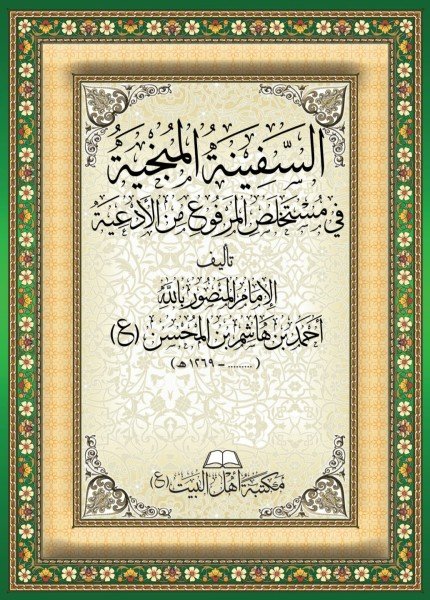 السَّفِينَةُ المُنْجِيَةُ
فِي مُسْتَخْلَصِ المَرْفُوعِ مِنَ الأَدْعِيَةِ
تأليف
الإمام المنصور بالله
أحمد بن هاشم بن المحسن (ع)
( ......... - ١٢٦٩ هـ )
مكتبة أهل البيت (ع)